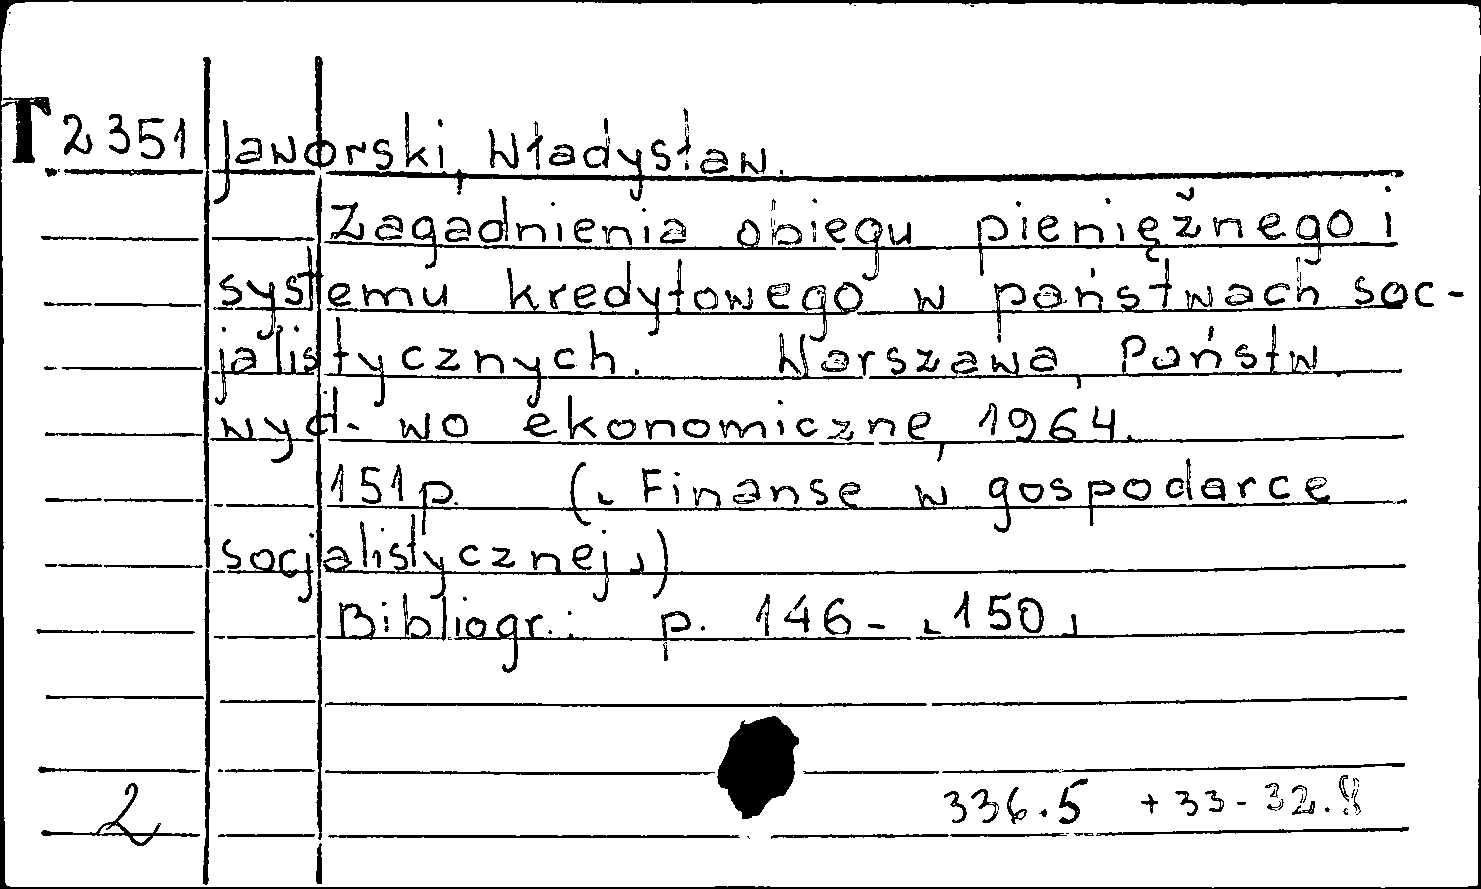 T 2351 Jaworski, Władysław.
Zagadnienia obiegu pieniężnego i
systemu kredytowego w państwach soc-
jalistycznych. Warszawa, Państw.
wyd-wo ekonomiczne, 1964.
151 p. (⌞Finanse w gospodarce
socjalistycznej⌟)
Bibliogr.: p. 146-⌞150⌟
336.5 + 33-32.8
2